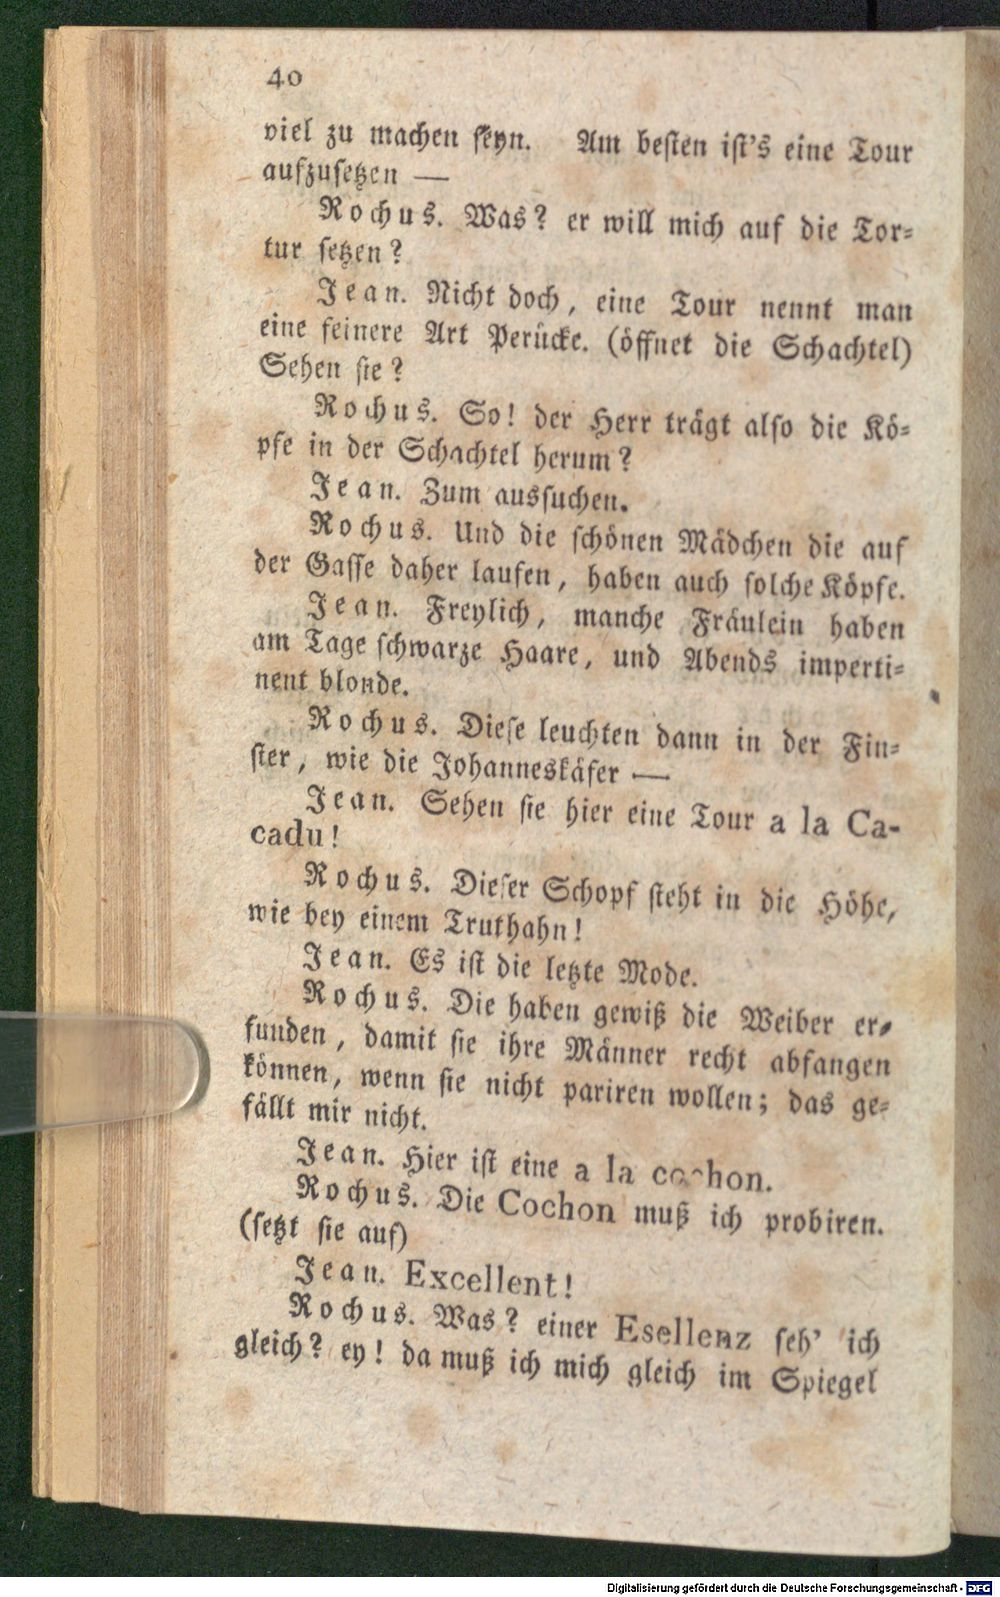 40
viel zu machen seyn. Am besten ist's eine Tour
aufzusetzen —
Rochus. Was? er will mich auf die Tor-
tur setzen?
Jean. Nicht doch, eine Tour nennt man
eine feinere Art Perücke. (öffnet die Schachtel)
Sehen sie?
Rochus. So! der Herr trägt also die Kö-
pfe in der Schachtel herum?
Jean. Zum aussuchen.
Rochus. Und die schönen Mädchen die auf
der Gasse daher laufen, haben auch solche Köpfe.
Jean. Freylich, manche Fräulein haben
am Tage schwarze Haare, und Abends imperti-
nent blonde.
Rochus. Diese leuchten dann in der Fin-
ster, wie die Johanneskäfer —
Jean. Sehen sie hier eine Tour a la Ca-
cadu!
Rochus. Dieser Schopf steht in die Höhe,
wie bey einem Truthahn!
Jean. Es ist die letzte Mode.
Rochus. Die haben gewiß die Weiber er-
funden, damit sie ihre Männer recht abfangen
können, wenn sie nicht pariren wollen; das ge-
fällt mir nicht.
Jean. Hier ist eine a la cochon.
Rochus. Die Cochon muß ich probiren.
(setzt sie auf)
Jean. Excellent!
Rochus. Was? einer Esellenz seh' ich
gleich? ey! da muß ich mich gleich im Spiegel
Digitalisierung gefördert durch die Deutsche Forschungsgemeinschaft - DFG